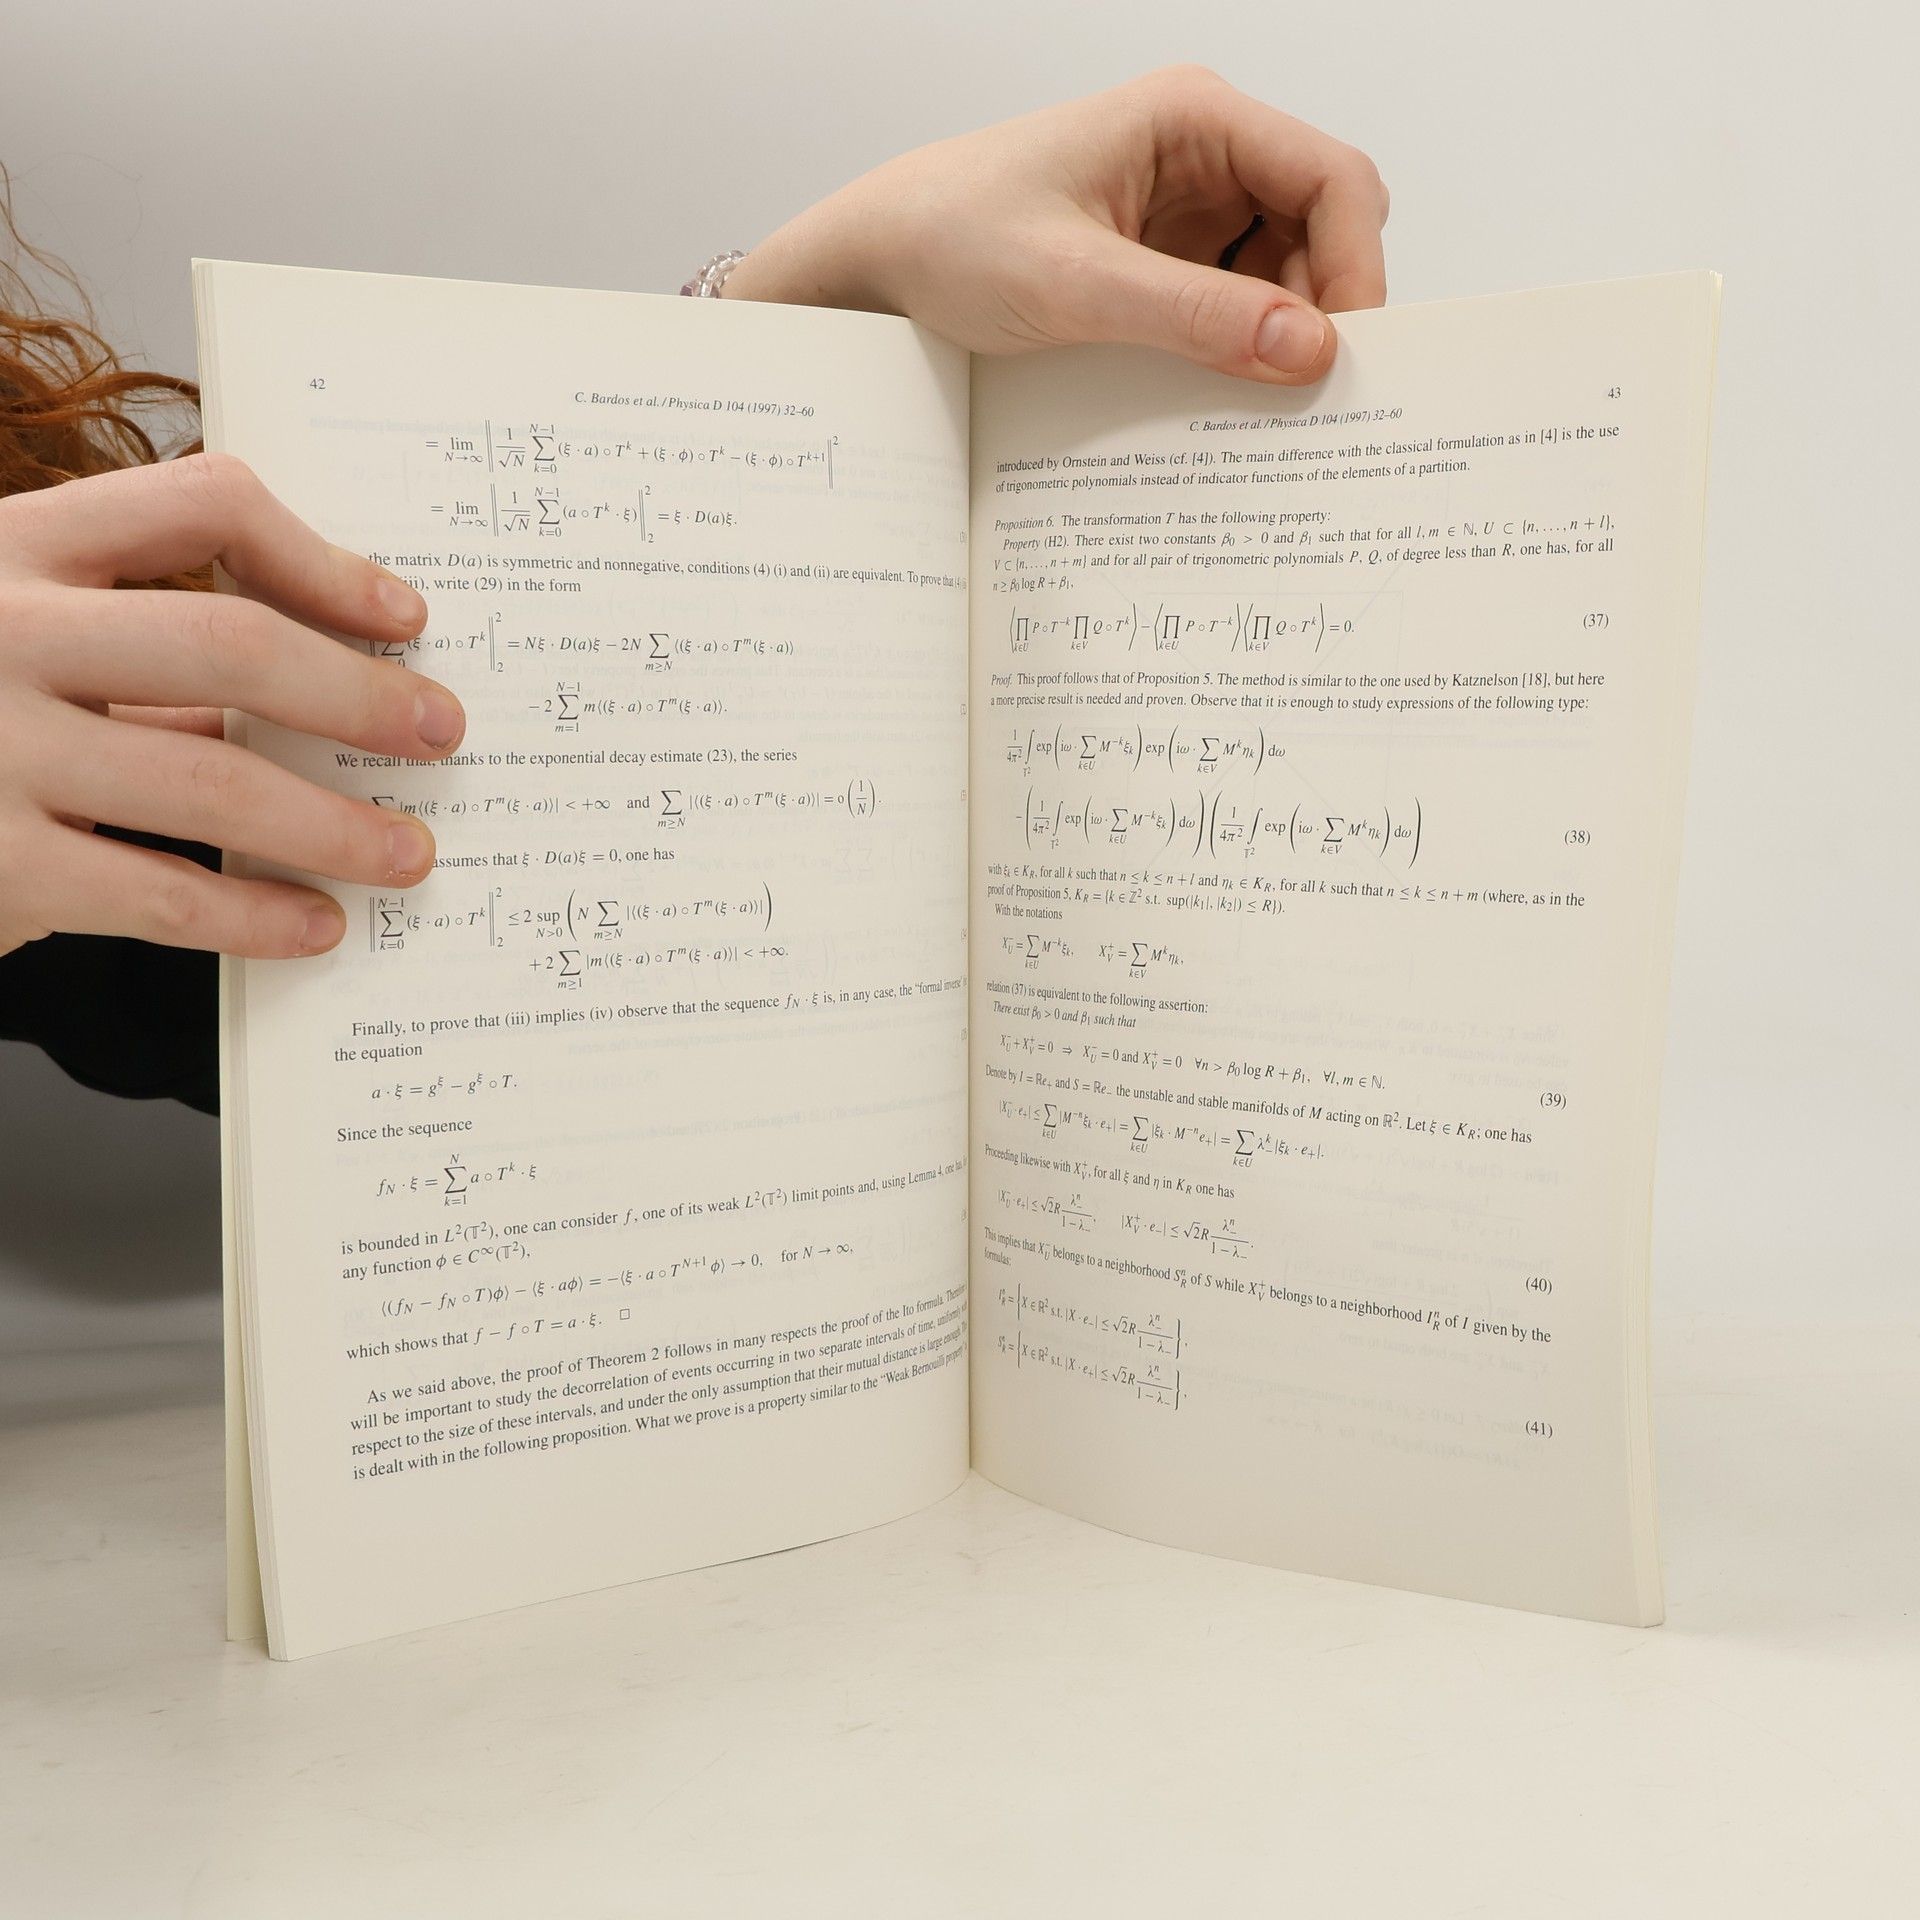 42
C. Bardos et al. / Physica D 104 (1997) 32–60
= lim_{N→∞} ‖ 1/√N ∑_{k=0}^{N−1} (ξ · a) ∘ T^k + (ξ · ϕ) ∘ T^k − (ξ · ϕ) ∘ T^{k+1} ‖²
= lim_{N→∞} ‖ 1/√N ∑_{k=0}^{N−1} (a ∘ T^k · ξ) ‖²_2 = ξ · D(a)ξ.
the matrix D(a) is symmetric and nonnegative, conditions (4) (i) and (ii) are equivalent. To prove that
(iii), write (29) in the form
(ξ · a) ∘ T^k ‖²_2 = Nξ · D(a)ξ − 2N ∑_{m≥N} ⟨(ξ · a) ∘ T^m (ξ · a)⟩
− 2 ∑_{m=1}^{N−1} m⟨(ξ · a) ∘ T^m (ξ · a)⟩.
We recall that, thanks to the exponential decay estimate (23), the series
∑ |m⟨(ξ · a) ∘ T^m (ξ · a)⟩| < +∞ and ∑_{m≥N} |⟨(ξ · a) ∘ T^m (ξ · a)⟩| = o(1/N).
assumes that ξ · D(a)ξ = 0, one has
‖ ∑_{k=0}^{N−1} (ξ · a) ∘ T^k ‖²_2 ≤ 2 sup_{N>0} ( N ∑_{m≥N} |⟨(ξ · a) ∘ T^m (ξ · a)⟩| )
+ 2 ∑_{m≥1} |m⟨(ξ · a) ∘ T^m (ξ · a)⟩| < +∞.
Finally, to prove that (iii) implies (iv) observe that the sequence f_N · ξ is, in any case, the "formal inverse"
the equation
a · ξ = g^ξ − g^ξ ∘ T.
Since the sequence
f_N · ξ = ∑_{k=1}^{N} a ∘ T^k · ξ
is bounded in L²(𝕋²), one can consider f, one of its weak L²(𝕋²) limit points and, using Lemma 4, one has,
any function ϕ ∈ C^∞(𝕋²),
⟨(f_N − f_N ∘ T)ϕ⟩ − ⟨ξ · aϕ⟩ = −⟨ξ · a ∘ T^{N+1} ϕ⟩ → 0, for N → ∞,
which shows that f − f ∘ T = a · ξ. □
As we said above, the proof of Theorem 2 follows in many respects the proof of the Ito formula. Therefore
will be important to study the decorrelation of events occurring in two separate intervals of time, uniformly with
respect to the size of these intervals, and under the only assumption that their mutual distance is large enough. This
is dealt with in the following proposition. What we prove is a property similar to the "Weak Bernouilli property"
43
C. Bardos et al. / Physica D 104 (1997) 32–60
introduced by Ornstein and Weiss (cf. [4]). The main difference with the classical formulation as in [4] is the use
of trigonometric polynomials instead of indicator functions of the elements of a partition.
Proposition 6. The transformation T has the following property:
Property (H2). There exist two constants β₀ > 0 and β₁ such that for all l, m ∈ ℕ, U ⊂ {n, . . . , n + l},
V ⊂ {n, . . . , n + m} and for all pair of trigonometric polynomials P, Q, of degree less than R, one has, for all
n ≥ β₀ log R + β₁,
⟨ ∏_{k∈U} P ∘ T^{−k} ∏_{k∈V} Q ∘ T^k ⟩ − ⟨ ∏_{k∈U} P ∘ T^{−k} ⟩ ⟨ ∏_{k∈V} Q ∘ T^k ⟩ = 0. (37)
Proof. This proof follows that of Proposition 5. The method is similar to the one used by Katznelson [18], but here
a more precise result is needed and proven. Observe that it is enough to study expressions of the following type:
1/4π² ∫_{𝕋²} exp( iω · ∑_{k∈U} M^{−k} ξ_k ) exp( iω · ∑_{k∈V} M^k η_k ) dω
− ( 1/4π² ∫_{𝕋²} exp( iω · ∑_{k∈U} M^{−k} ξ_k ) dω ) ( 1/4π² ∫_{𝕋²} exp( iω · ∑_{k∈V} M^k η_k ) dω ) (38)
with ξ_k ∈ K_R, for all k such that n ≤ k ≤ n + l and η_k ∈ K_R, for all k such that n ≤ k ≤ n + m (where, as in the
proof of Proposition 5, K_R = {k ∈ ℤ² s.t. sup(|k₁|, |k₂|) ≤ R}).
With the notations
X_U^− = ∑_{k∈U} M^{−k} ξ_k, X_V^+ = ∑_{k∈V} M^k η_k,
relation (37) is equivalent to the following assertion:
There exist β₀ > 0 and β₁ such that
X_U^− + X_V^+ = 0 ⇒ X_U^− = 0 and X_V^+ = 0 ∀n > β₀ log R + β₁, ∀l, m ∈ ℕ. (39)
Denote by I = ℝe₊ and S = ℝe₋ the unstable and stable manifolds of M acting on ℝ². Let ξ ∈ K_R; one has
|X_U^− · e₊| ≤ ∑_{k∈U} |M^{−n} ξ_k · e₊| = ∑_{k∈U} |ξ_k · M^{−n} e₊| = ∑_{k∈U} λ₋^k |ξ_k · e₊|.
Proceeding likewise with X_V^+, for all ξ and η in K_R one has
|X_U^− · e₊| ≤ √2R λ₋^n/(1 − λ₋), |X_V^+ · e₋| ≤ √2R λ₋^n/(1 − λ₋). (40)
This implies that X_U^− belongs to a neighborhood S_R^n of S while X_V^+ belongs to a neighborhood I_R^n of I given by the
formulas:
I_R^n = { X ∈ ℝ² s.t. |X · e₋| ≤ √2R λ₋^n/(1 − λ₋) },
S_R^n = { X ∈ ℝ² s.t. |X · e₊| ≤ √2R λ₋^n/(1 − λ₋) }. (41)